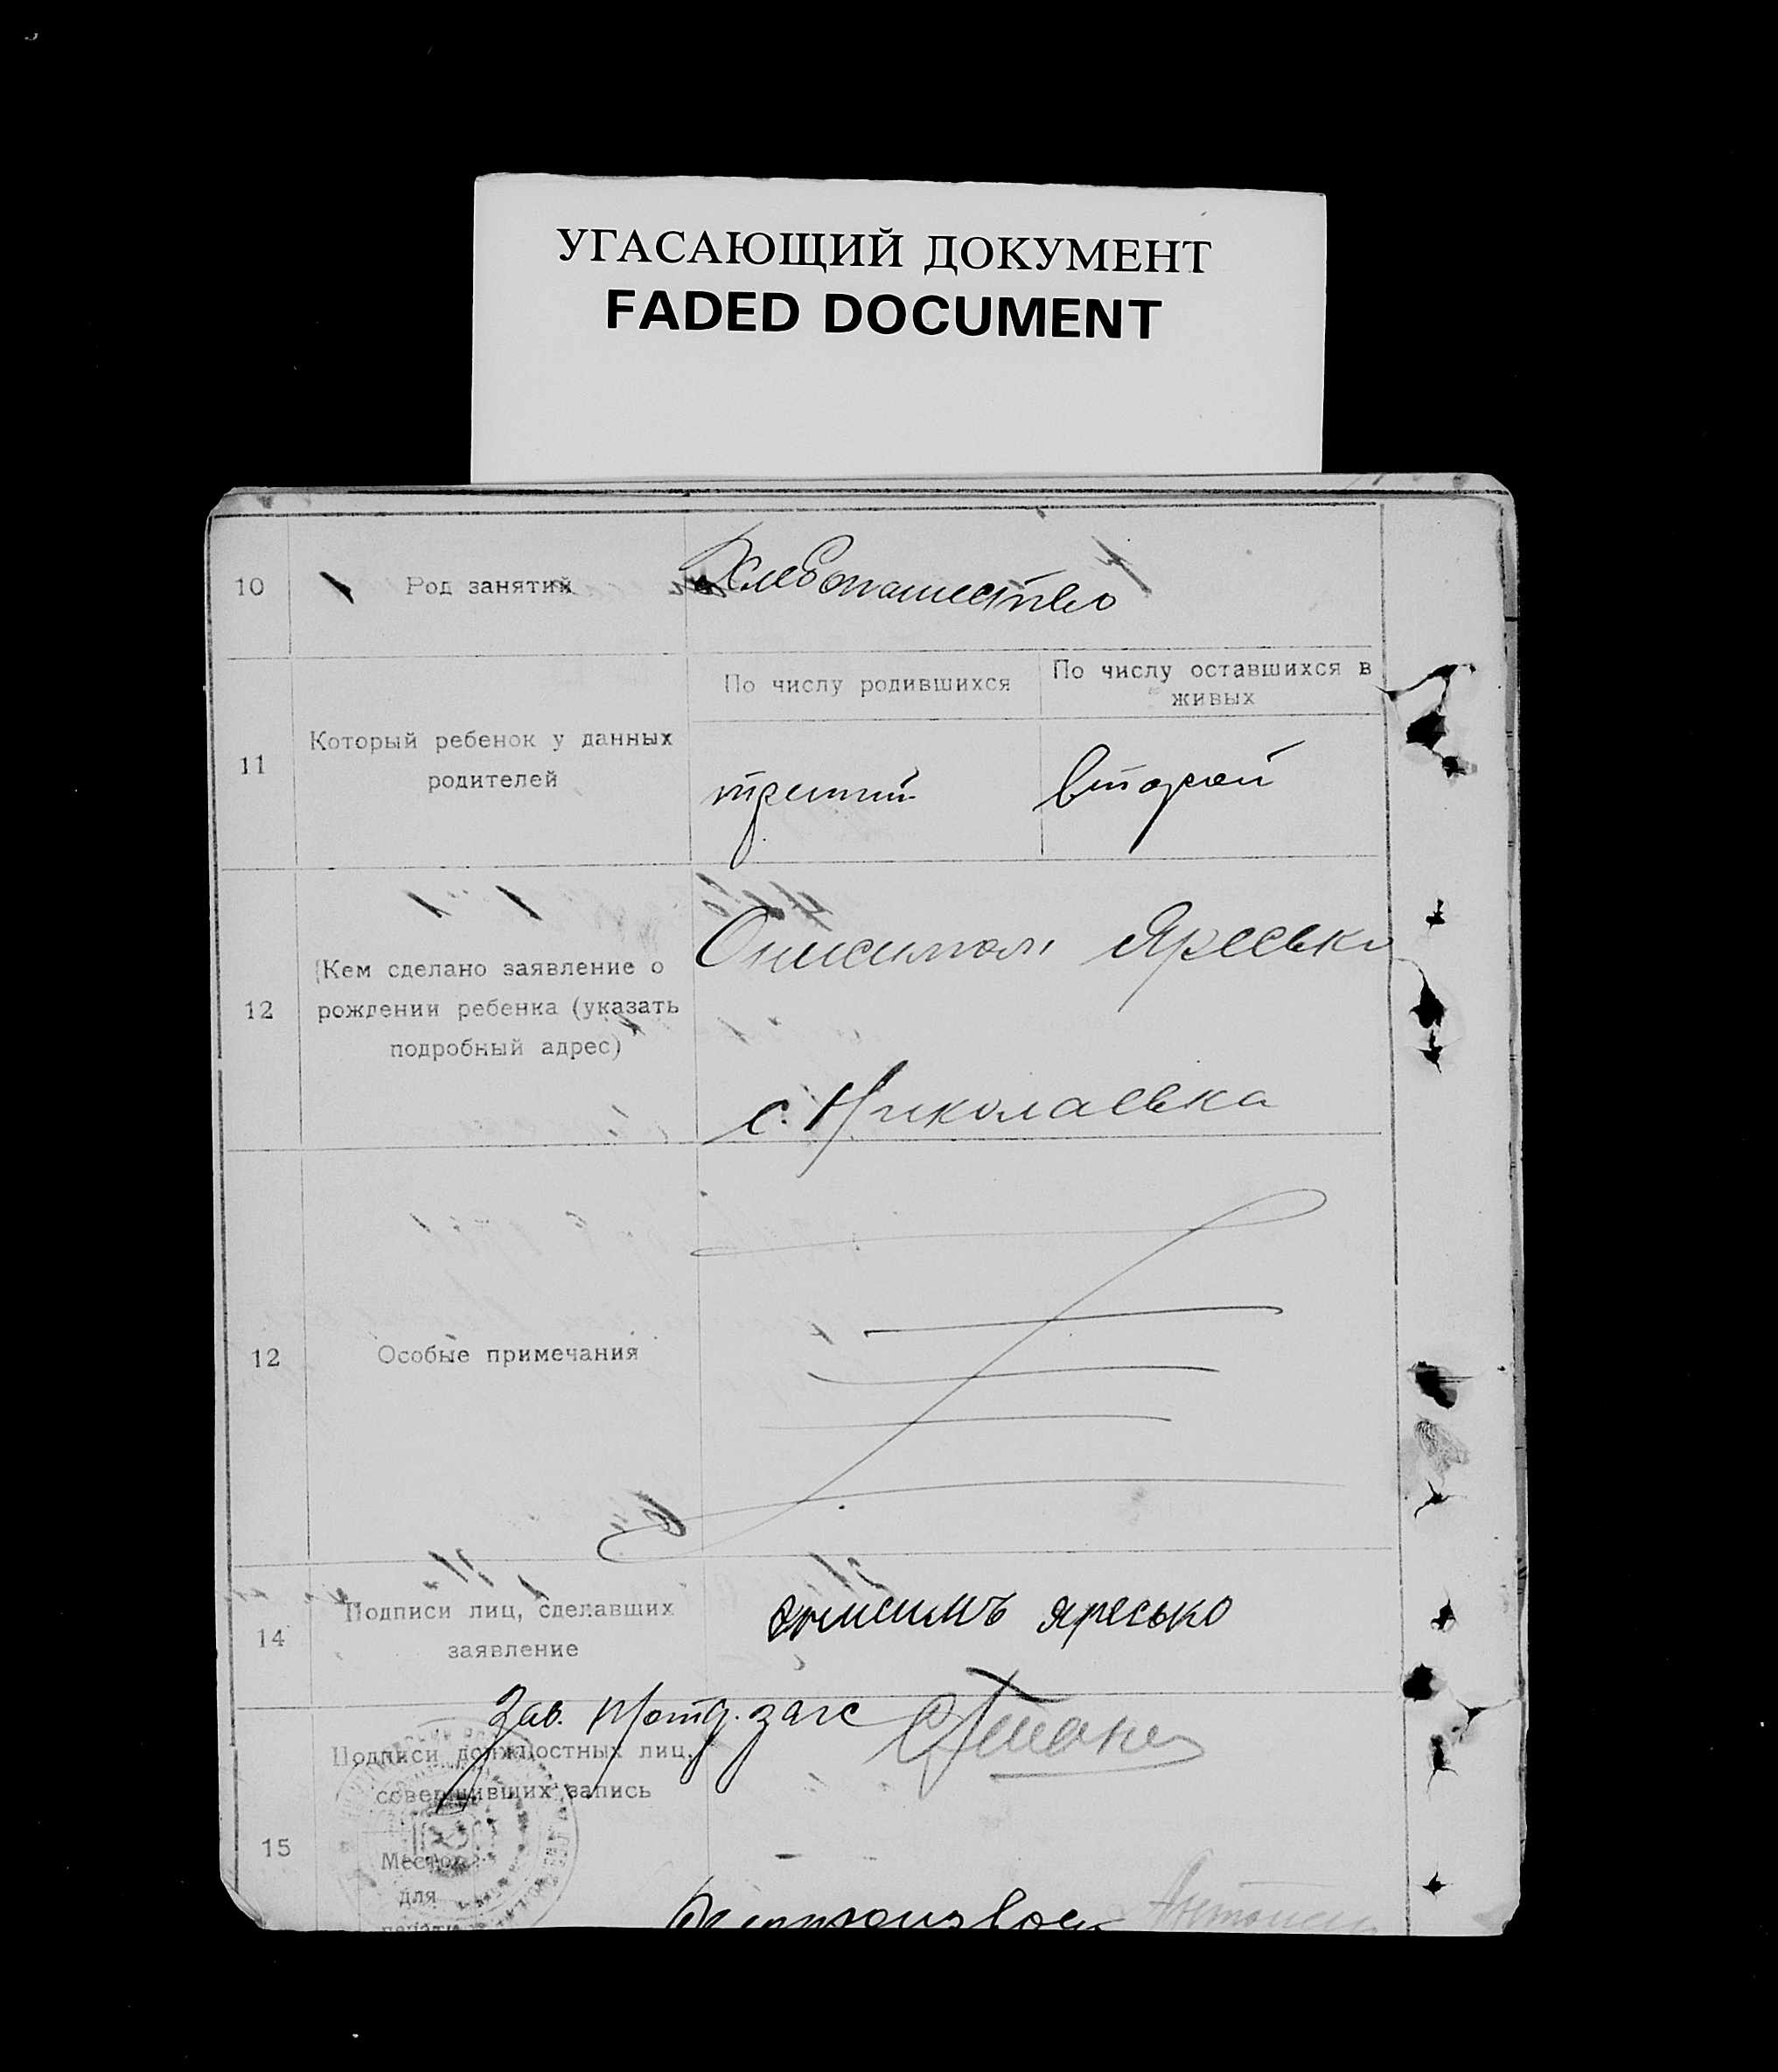 УГАСАЮЩИЙ ДОКУМЕНТ
FADED DOCUMENT
10 Род занятий Хлебопашество
По числу родившихся По числу оставшихся в
живых
11 Который ребенок у данных
родителей
третий второй
12 Кем сделано заявление о
рождении ребенка (указать
подробный адрес)
Онисимом Яресько
с. Николаевка
12 Особые примечания
14 Подписи лиц, сделавших
заявление
Онисимъ яресько
Зав. загс
15 Подписи должностных лиц,
совершивших запись
Место
для
печати
Делопроизвод